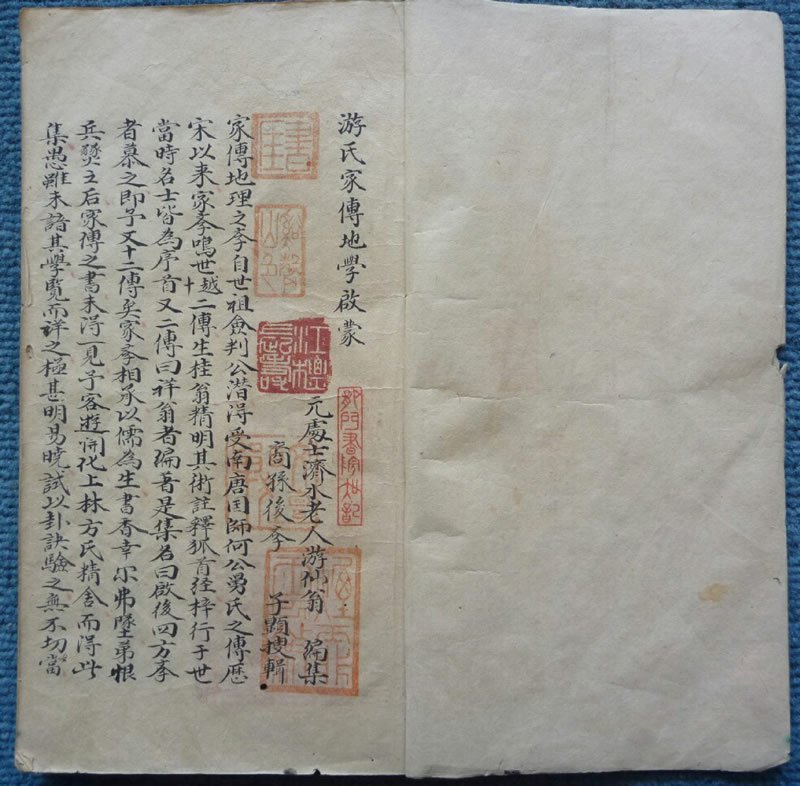 游氏家傳地學啟蒙
元處士濟水老人游仙翁 編集
裔孫後孝 子顯搜輯
家傳地理之孝自世祖僉判公潛得受南唐囯師何公溥氏之傳歷
宋以来家孝鳴世越十二傳生桂翁精明其術註釋狐首经梓行于世
當時名士皆為序首又二傳曰祥翁者编著是集名曰啟後四方孝
者慕之即予又十二傳矣家孝相承以儒為生書香幸尔弗墜苐恨
兵燹之后家傳之書未得一見予客遊開化上林方氏精舍而得此
集愚雖未諳其學覧而详之極甚明易曉試以卦訣驗之無不切當